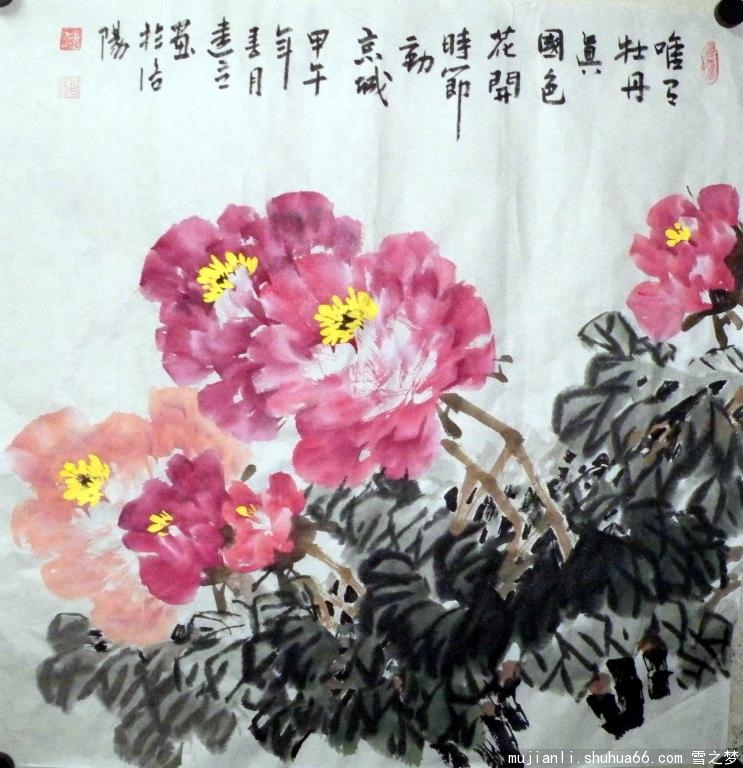 唯有
牡丹
眞
國色
花開
時節
動
京城
甲午
年
春月
建立
畫
於洛
陽
mujianli.shuhua66.com 雪之梦